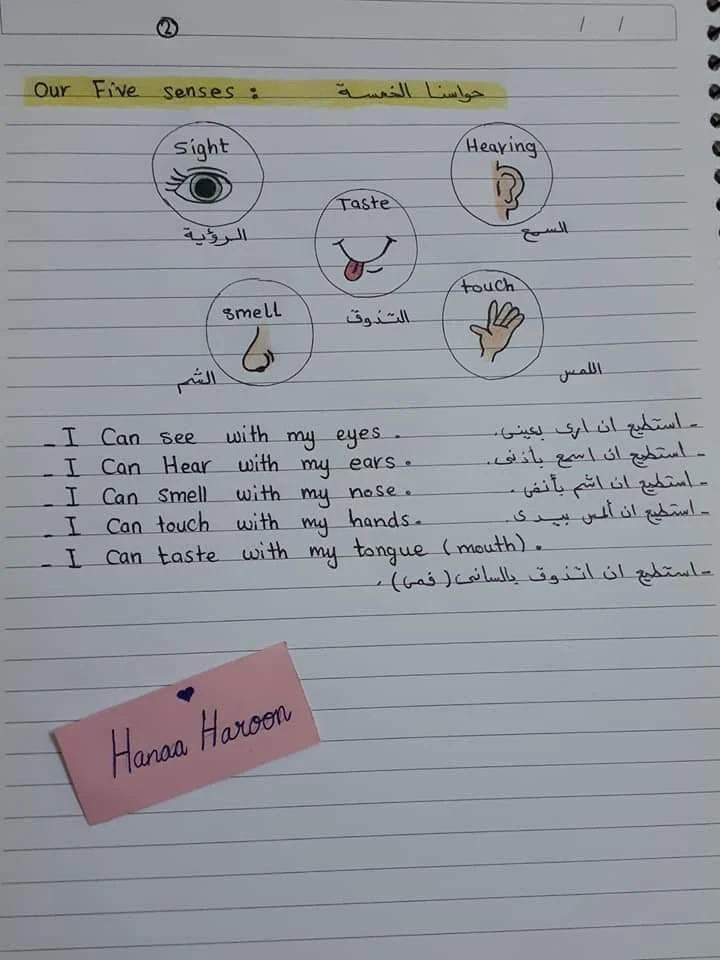 2
/ /
Our Five senses : حواسنا الخمسة
Sight
Hearing
Taste
الرؤية
السمع
smell
touch
التذوق
الشم
اللمس
- I Can see with my eyes . - استطيع ان ارى بعينى.
- I Can Hear with my ears . - استطيع ان اسمع بأذنى.
- I Can smell with my nose . - استطيع ان اشم بأنفى.
- I Can touch with my hands . - استطيع ان ألمس بيدى.
- I Can taste with my tongue (mouth) .
- استطيع ان اتذوق بالسانى (فمى) .
Hanaa Haroon